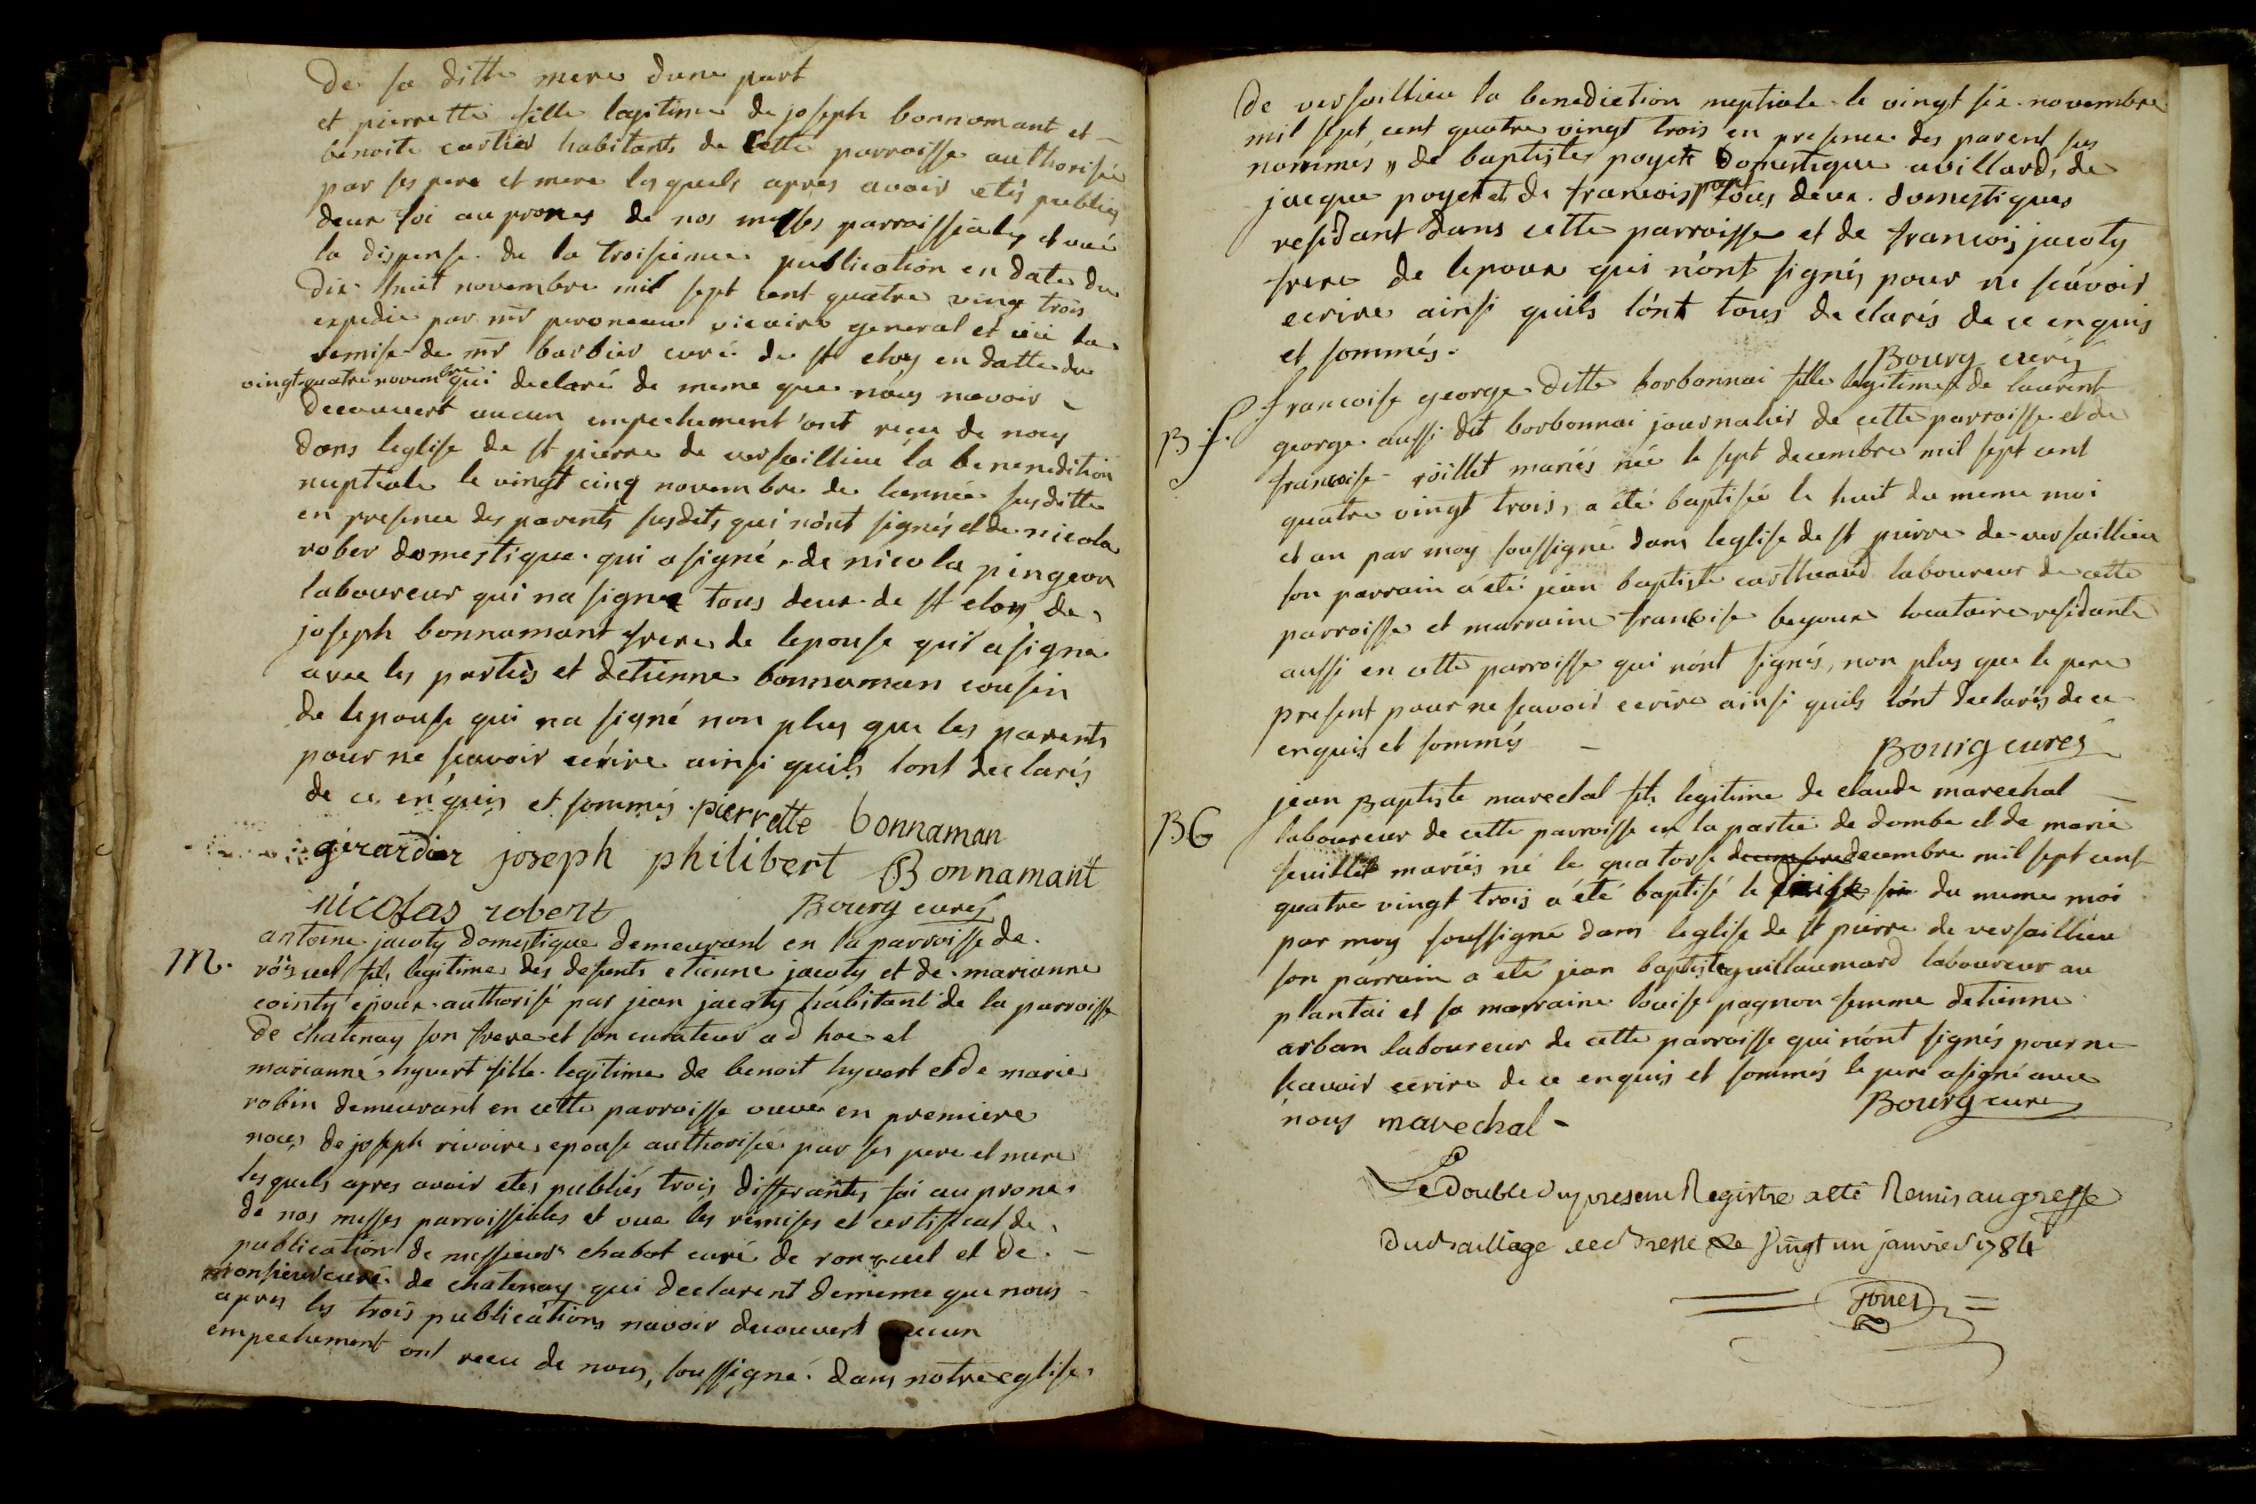 de sa ditte mere dune part
et pierrette fille legitime de joseph bonnamant et
benoite cartier habitants de cette parroisse authorisée
par ses pere et mere les quels apres avoir etés publies
deux foi au prones de nos messes parroissiales et vue
la dispense de la troisieme publication en date du
dix huit novembre mil sept cent quatre ving trois
expedie par mr peroneau vicaire general et vue la
remise de mr barbier curé de st eloy en datte du
vingt quatre novembre qui declaré de meme que nous navoir
decouvert aucun empechement ont recu de nous
dans leglise de st pierre de versaillieu la benenedition
nuptiale le vingt cinq novembre de lannée susditte
en presence des parents susdits qui n'ont signés et de nicola
rober domestique qui a signé, de nicola pingeon
laboureur qui na signe tous deux de st eloy de
joseph bonnamant frere de lepouse qui a signe
avec les parties et detienne bonnaman cousin
de lepouse qui na signé non plus que les parents
pour ne scavoir ecrire ainsi quils lont declarés
de ce enquis et sommés. pierrette bonnaman
girardier joseph philibert Bonnamant
nicolas robert Bourg curé
M. antoine jacoty domestique demeurant en la parroisse de
ronzuel fils legitime des defents etienne jacoty et de marianne
cointy epoux authorisé par jean jacoty habitant de la parroisse
de chatenay son frere et son curateur ad hoc et
marianne hyvert fille legitime de benoit hyvert et de marie
robin demeurant en cette parroisse veuve en premiere
noces de joseph rivoire epouse authorisée par ses pere et mere
les quels apres avoir etes publiés trois differantes foi au prone
de nos messes parroissialles et vue les remises et certificat de
publication de messieurs chabot curé de ronzuel et de
monsieur curé de chatenay qui declarent dememe que nous
apres les trois publications navoir decouvert aucun
empechement ont recu de nous soussigné dans notre eglise
de versaillieu la benediction nuptiale le vingt six novembre
mil sept cent quatre vingt trois en presence des parent sus
nommés, de baptiste poyet domestique a villard, de
jacque poyet et de francois tous deux domestiques
residant dans cette parroisse et de francois jacoty
frere de lepoux qui n'ont signés pour ne scavoir
ecrire ainsi quils l'ont tous declarés de ce enquis
et sommés. Bourg curé
B f. francoise george ditte borbonnai fille legitime de laurent
george aussi dit borbonnai journalier de cette parroisse et de
francoise roillet mariés née le sept decembre mil sept cent
quatre vingt trois, a été baptisée le huit du meme moi
et an par moy soussigné dans leglise de st pierre de versaillieu
son parrain a été jean baptiste cartheaud laboureur de cette
parroisse et marraine francoise beyoux locataire residante
aussi en cette parroisse qui n'ont signés, non plus que le pere
present pour ne scavoir ecrire ainsi quils l'ont declarés de ce
enquis et sommés Bourg curé
BG jean Baptiste marechal fils legitime de claude marechal
laboureur de cette parroisse en la partie de dombe et de marie
feuillet mariés né le quatorse decembre mil sept cent
quatre vingt trois a été baptisé le du meme moi
par moy soussigné dans leglise de st pierre de versaillieu
son parrain a eté jean baptiste guillaumard laboureur au
plantai et sa marraine louise pagnon femme detienne
arban laboureur de cette parroisse qui n'ont signés pour ne
scavoir ecrire de ce enquis et sommés le pere a signé avec
nous marechal Bourg curé
Le double du present Registre a eté Remis au greffe
du Bailliage de Bresse le vingt un janvier 1784